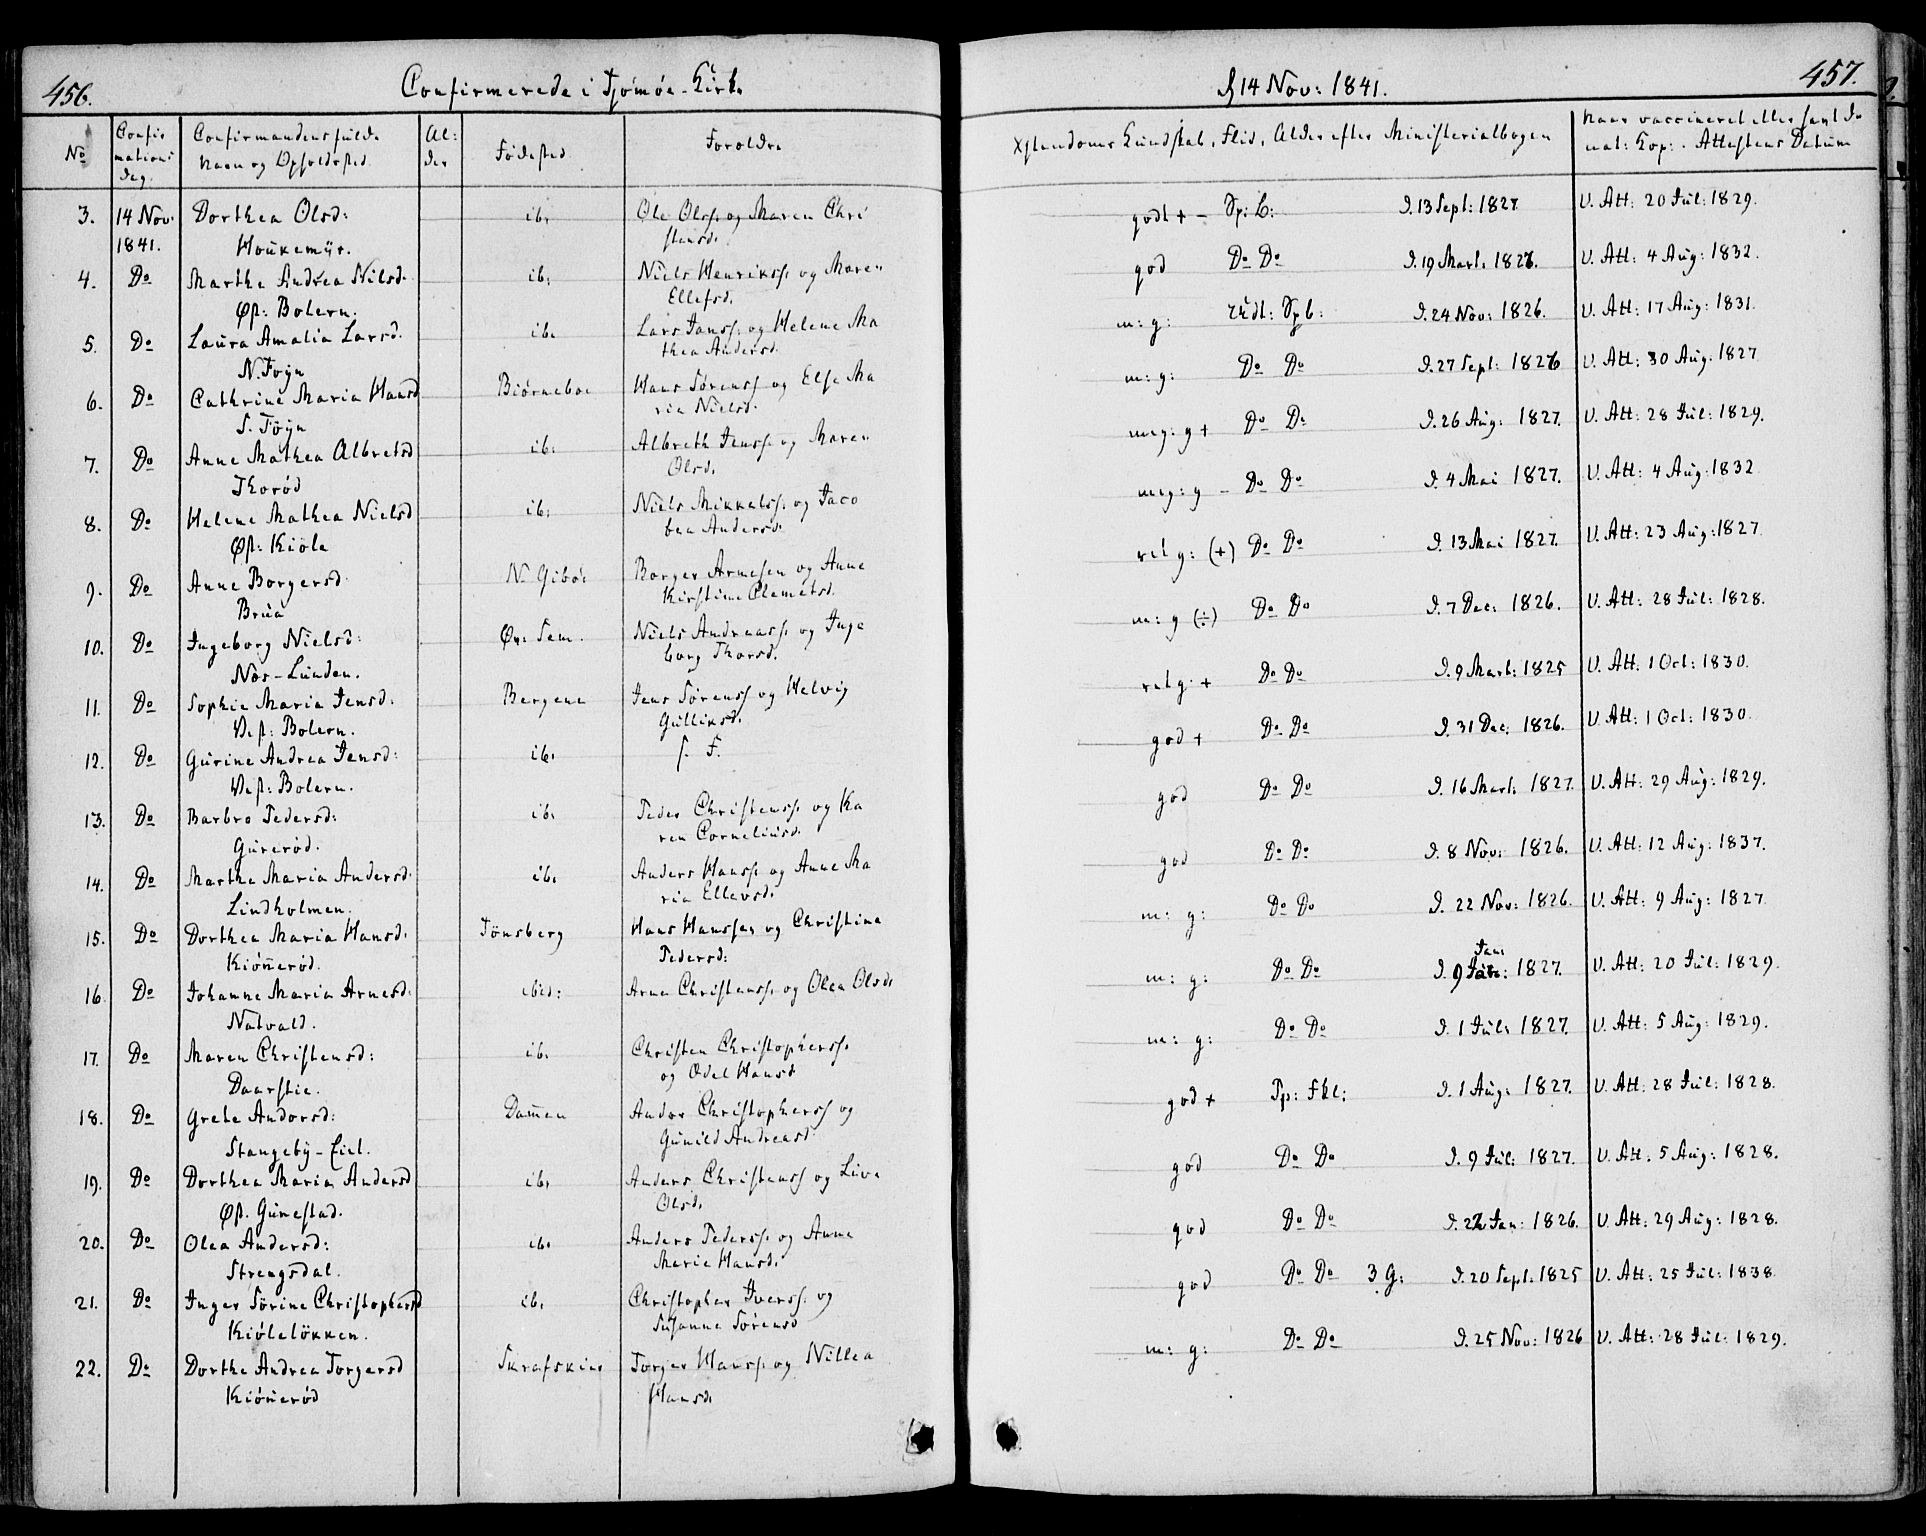 456.
Confirmerede i Tjömöe-Kirk.
No
Confir
mations
dag.
Confirmandens fulde
Navn og Opholdsted
Al:
der
Födested
Foroldre
3. 14 Nov: Dorthea Olsd: ib: Ole Olss. og Maren Chri
1841. Houkemÿr. stensd.
4. Do Marthe Andrea Nilsd. ib: Niels Henrikss. og Maren
Øst: Bolern. Ellefsd.
5. Do Laura Amalia Larsd. ib. Lars Janss: og Helene Ma
N. Foÿn thea Andersd.
6. Do Cathrine Maria Hansd Biörneboe Hans Sörenss og Else Ma
S. Foÿn ria Nielsd.
7. Do Anne Mathea Albretsd ib: Albreth Jenss. og Maren
Thorød Olsd.
8. Do Helene Mathea Nielsd ib: Niels Mikkelss. og Jaco
Øst: Kiöle bea Andersd.
9. Do Anne Borgersd N. Giböe Borger Arnesen og Anne
Brua Kirstine Clemetsd.
10. Do Ingeborg Nielsd: Øv: Sem. Niels Andreass. og Inge
Nös-Lunden. borg Thorsd.
11. Do Sophie Maria Jensd: Bergene Jens Sörenss og Helvig
Vest: Bolern. Gulliksd.
12. Do Gurine Andrea Jensd: ib. s. F.
Vest: Bolern.
13. Do Barbro Pedersd: ib. Peder Christenss. og Ka
Gurerød. ren Corneliusd.
14. Do Marthe Maria Andersd. ib. Anders Hanss. og Anne Ma
Lindholmen. ria Ellevsd.
15. Do Dorthea Maria Hansd. Tönsberg Hans Hanssen og Christine
Kiönnerød. Pedersd:
16. Do Johanne Maria Arnesd. ibid: Arne Christenss. og Olea Olsd.
Natvald.
17. Do Maren Christensd: ib. Christen Christopherss.
Daarstie. og Odel Hansd
18. Do Grete Andorsd: Dammen Andor Christopherss og
Stangebÿ-Eiet. Gunild Andreasd
19. Do Dorthea Maria Andersd ib. Anders Christenss og Live
Øst. Gunestad. Olsd.
20. Do Olea Andersd: ib. Anders Pederss. og Anne
Strengsdal. Marie Hansd.
21. Do Inger Sörine Christophersd ib. Christopher Iverss. og
Kiölelökken. Susanne Sörensd
22. Do Dorthe Andrea Torgersd Skrafskier Torger Hanss. og Nillea
Kiönnerød Hansd.
d 14 Nov: 1841.
457.
Xstendoms Kundskab, Flid, Alder efter Ministerialbogen
Naar vaccineret eller havt de
nat: Kop: . Attestens Datum
godt + - Sp: b: d. 13 Sept: 1827 V. Att: 20 Jul: 1829.
god Do Do d. 19 Mart: 1827. V. Att: 4 Aug: 1832.
m: g: Udl: Spb: d. 24 Nov: 1826. V. Att: 17 Aug: 1831.
m: g: Do Do d. 27 Sept: 1826 V. Att: 30 Aug: 1827
meg: g + Do Do d. 26 Aug: 1827. V. Att: 28 Jul: 1829.
meg: g - Do Do d. 4 Mai 1827. V. Att: 4 Aug: 1832
vel g: (+) Do Do d. 13 Mai 1827. V. Att: 23 Aug: 1827
m: g (÷) Do Do d. 7 Dec: 1826. V. Att: 28 Jul: 1828.
vel g: + Do Do d. 9 Mart: 1825 V. Att: 1 Oct: 1830.
god + Do Do d. 31 Dec: 1826. V. Att: 1 Oct: 1830.
god Do Do d. 16 Mart: 1827. V. Att: 29 Aug: 1829.
god Do Do d. 8 Nov: 1826. V. Att: 12 Aug: 1837.
m: g: Do Do d. 22 Nov: 1826. V. Att: 9 Aug: 1827
Jan:
m: g: Do Do d. 9 1827. V. Att: 20 Jul: 1829.
m: g: Do Do d. 1 Jul: 1827. V. Att: 5 Aug: 1829.
god + Sp: Fkl: d. 1 Aug: 1827. V. Att: 28 Jul: 1828.
god Do Do d. 9 Jul: 1827. V. Att. 5 Aug: 1828.
god Do Do d. 22 Jan: 1826. V. Att: 29 Aug: 1828.
god Do Do 3 G: d. 20 Sept: 1825 V. Att: 25 Jul: 1838
m: g: Do Do d. 25 Nov: 1826 V. Att: 28 Jul: 1829.